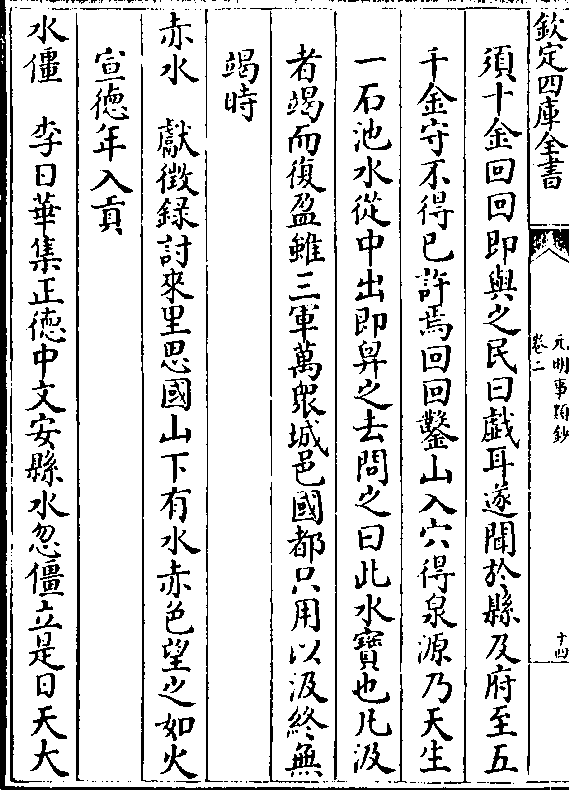 欽定四庫全書
元明事類鈔
卷二
十四
須十金回回即與之民曰戲耳遂聞於縣及府至五
千金守不得已許焉回回鑿山入穴得泉源乃天生
一石池水從中出即舁之去問之曰此水寶也凡汲
者竭而復盈雖三軍萬衆城邑國都只用以汲終無
竭時
赤水　獻徵録討來里思國山下有水赤色望之如火
宣德年入貢
水僵　李日華集正德中文安縣水忽僵立是日天大